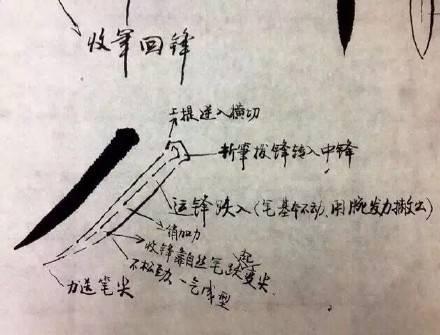 收笔回锋
上提逆入横切
折笔拔锋转入中锋
运锋跌入(笔基本不动,用腕发力撇出)
稍加力
收锋靠自然笔跌起变尖
不松劲、一气成型
力送笔尖